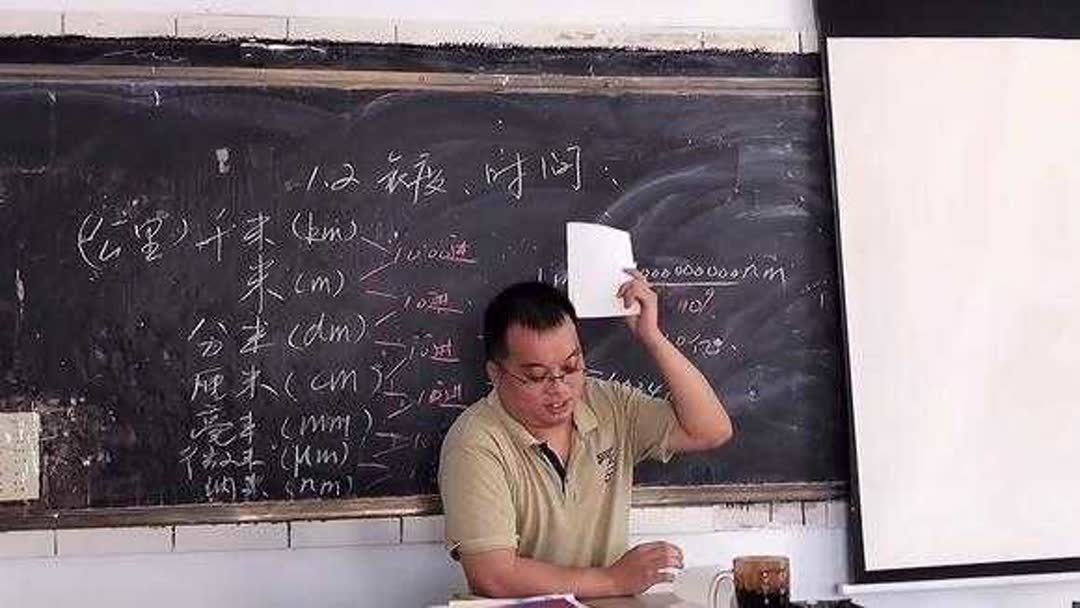 1.2 长度、时间:
(公里) 千米 (km)
1000进
米 (m)
10进
分米 (dm)
10进
厘米 (cm)
10进
毫米 (mm)
微米 (μm)
纳米 (nm)
1m
000000000nm
10⁹
0亿